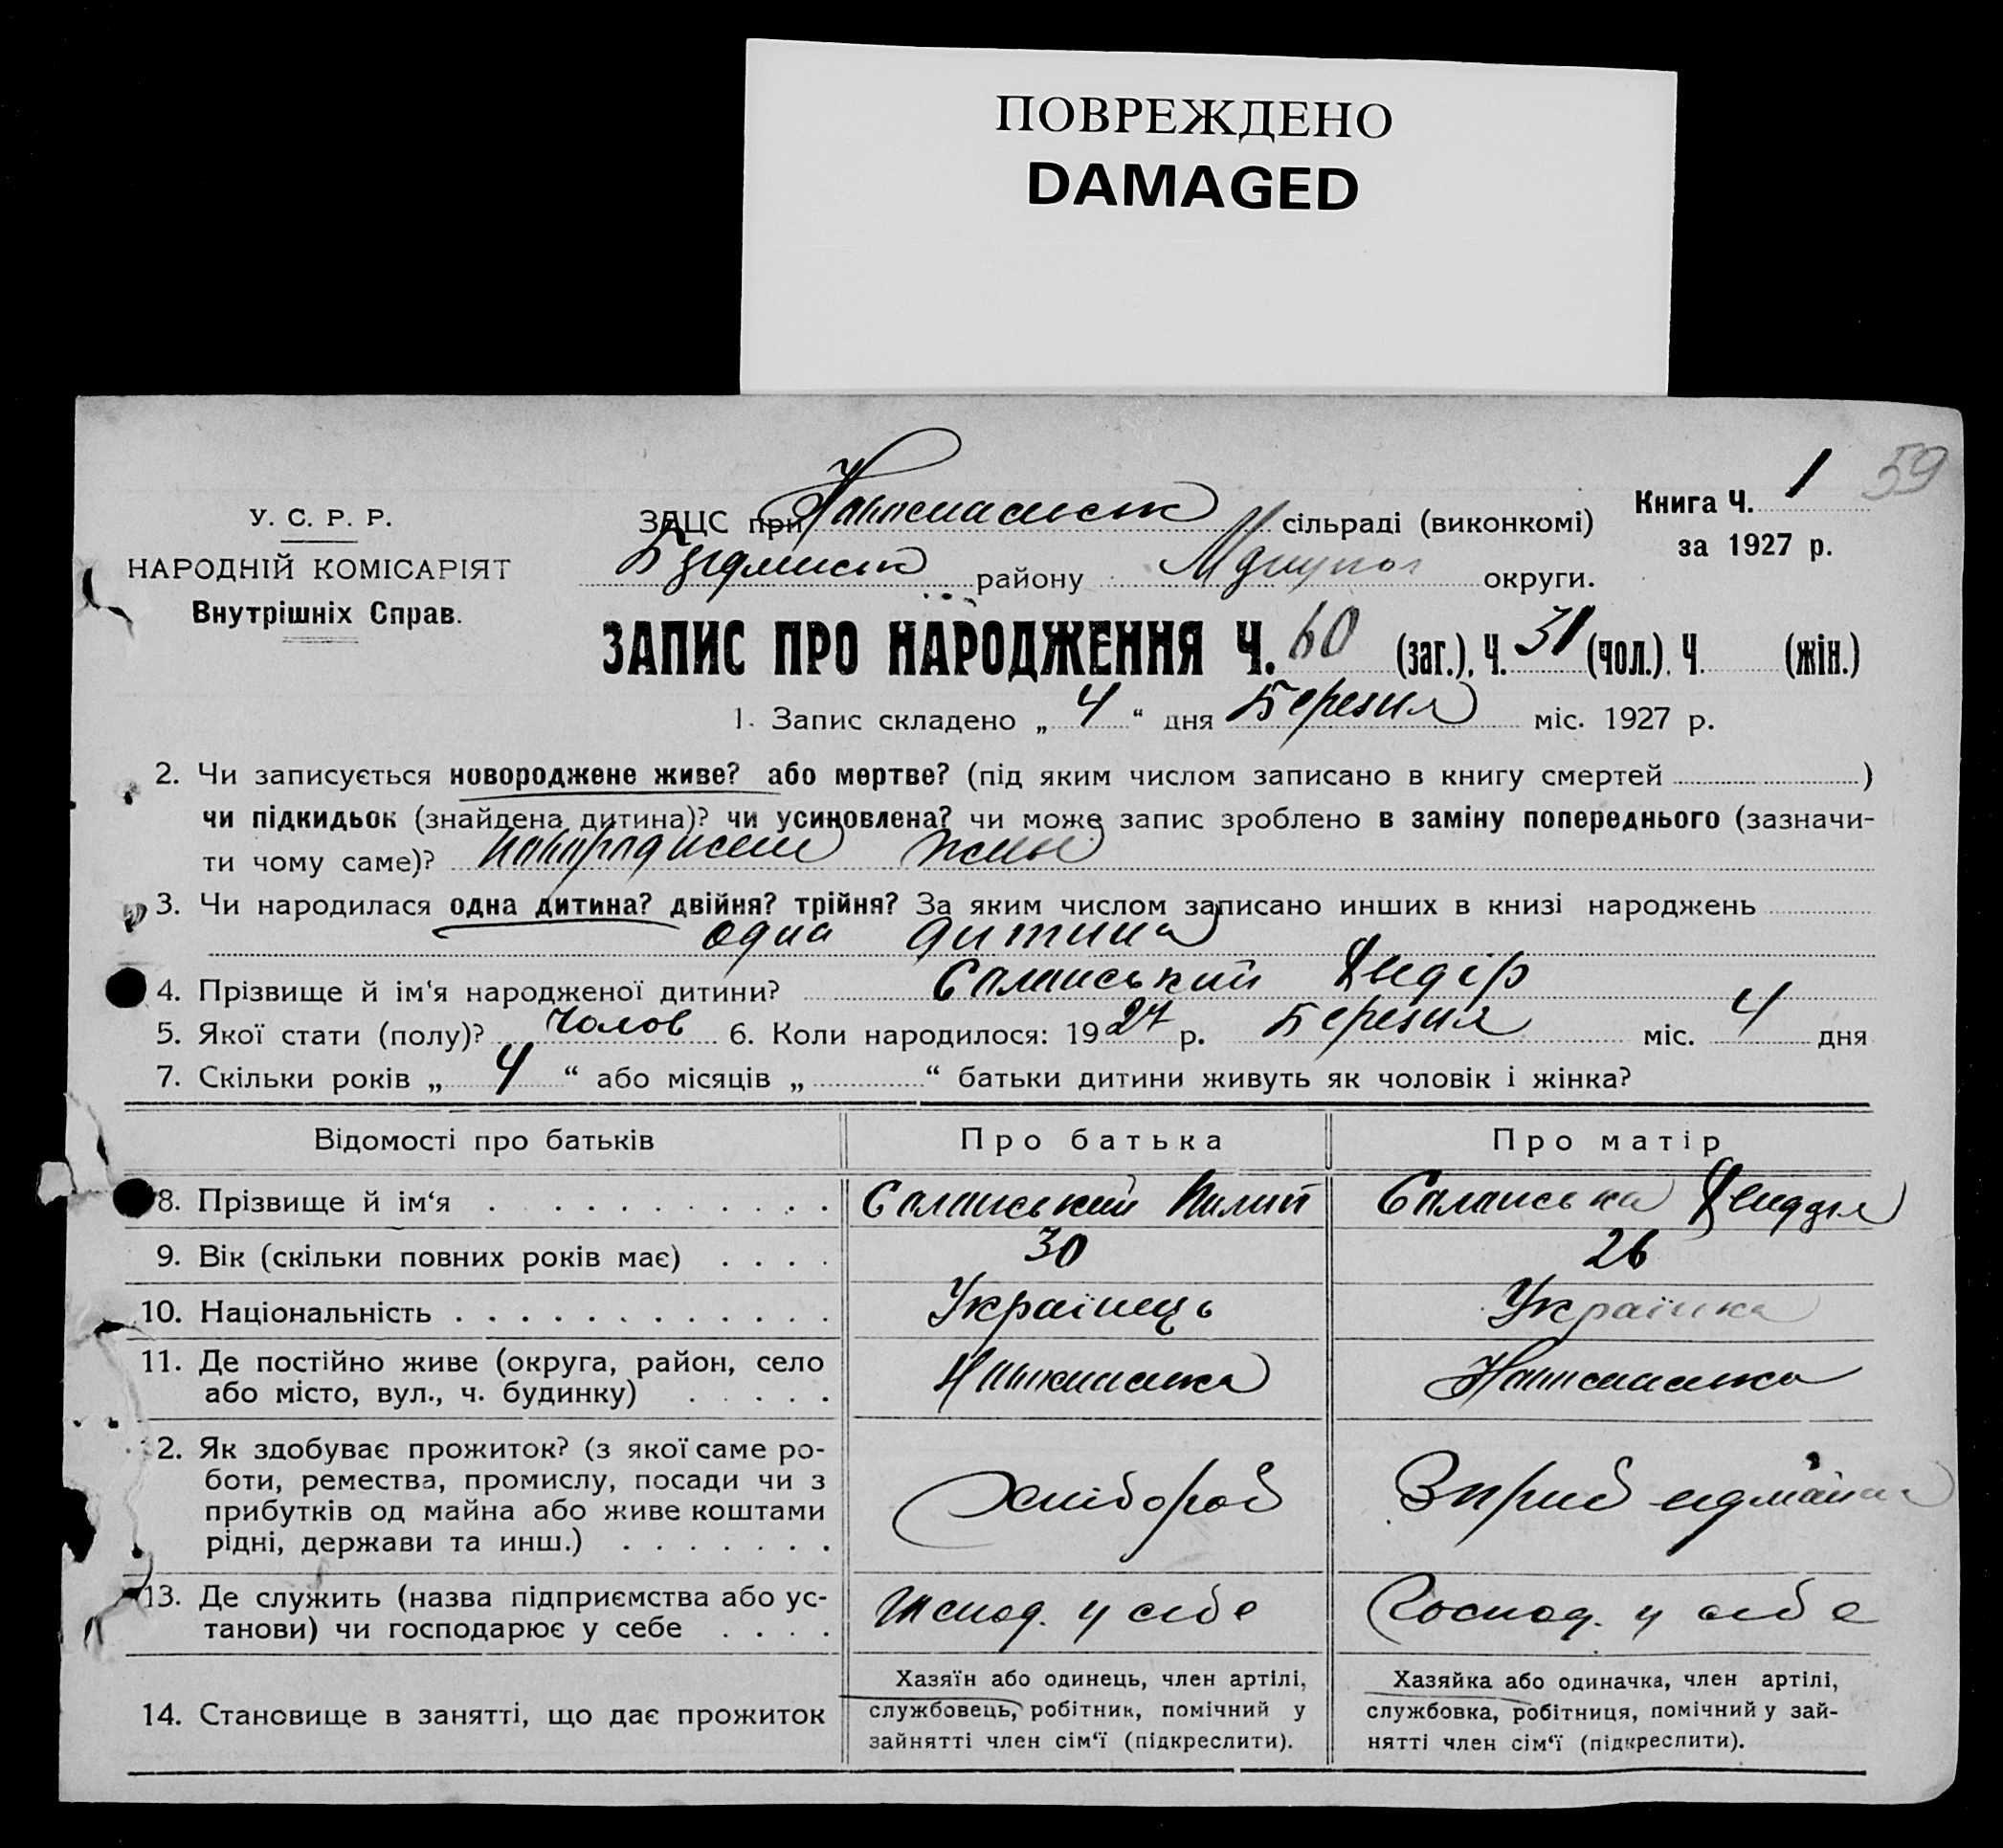 ПОВРЕЖДЕНО
DAMAGED
Книга Ч. 1 59
за 1927 р.
У. С. Р. Р.
НАРОДНІЙ КОМІСАРІЯТ
Внутрішніх Справ.
ЗАЦС при сільраді (виконкомі)
району округи.
ЗАПИС ПРО НАРОДЖЕННЯ Ч. 60 (заг.), Ч. 31 (чол.). Ч. (жін.)
1. Запис складено „ 4 “ дня Березня міс. 1927 р.
2. Чи записується новороджене живе? або мертве? (під яким числом записано в книгу смертей )
чи підкидьок (знайдена дитина)? чи усиновлена? чи може запис зроблено в заміну попереднього (зазначи-
ти чому саме)?
3. Чи народилася одна дитина? двійня? трійня? За яким числом записано инших в книзі народжень
одна дитина
4. Прізвище й ім‘я народженої дитини?
5. Якої стати (полу)? Чолов 6. Коли народилося: 1927 р. Березня міс. 4 дня
7. Скільки років „ 4 “ або місяців „ “ батьки дитини живуть як чоловік і жінка?
Відомості про батьків Про батька Про матір
8. Прізвище й ім‘я
9. Вік (скільки повних років має) 30 26
10. Національність Українець Українка
11. Де постійно живе (округа, район, село
або місто, вул., ч. будинку)
12. Як здобуває прожиток? (з якої саме ро-
боти, ремества, промислу, посади чи з
прибутків од майна або живе коштами
рідні, держави та инш.) Хлібороб
13. Де служить (назва підприємства або ус-
танови) чи господарює у себе Господ. у себе Господ. у себе
14. Становище в занятті, що дає прожиток
Хазяїн або одинець, член артілі,
службовець, робітник, помічний у
зайнятті член сім‘ї (підкреслити).
Хазяйка або одиначка, член артілі,
службовка, робітниця, помічний у зай-
нятті член сім‘ї (підкреслити).